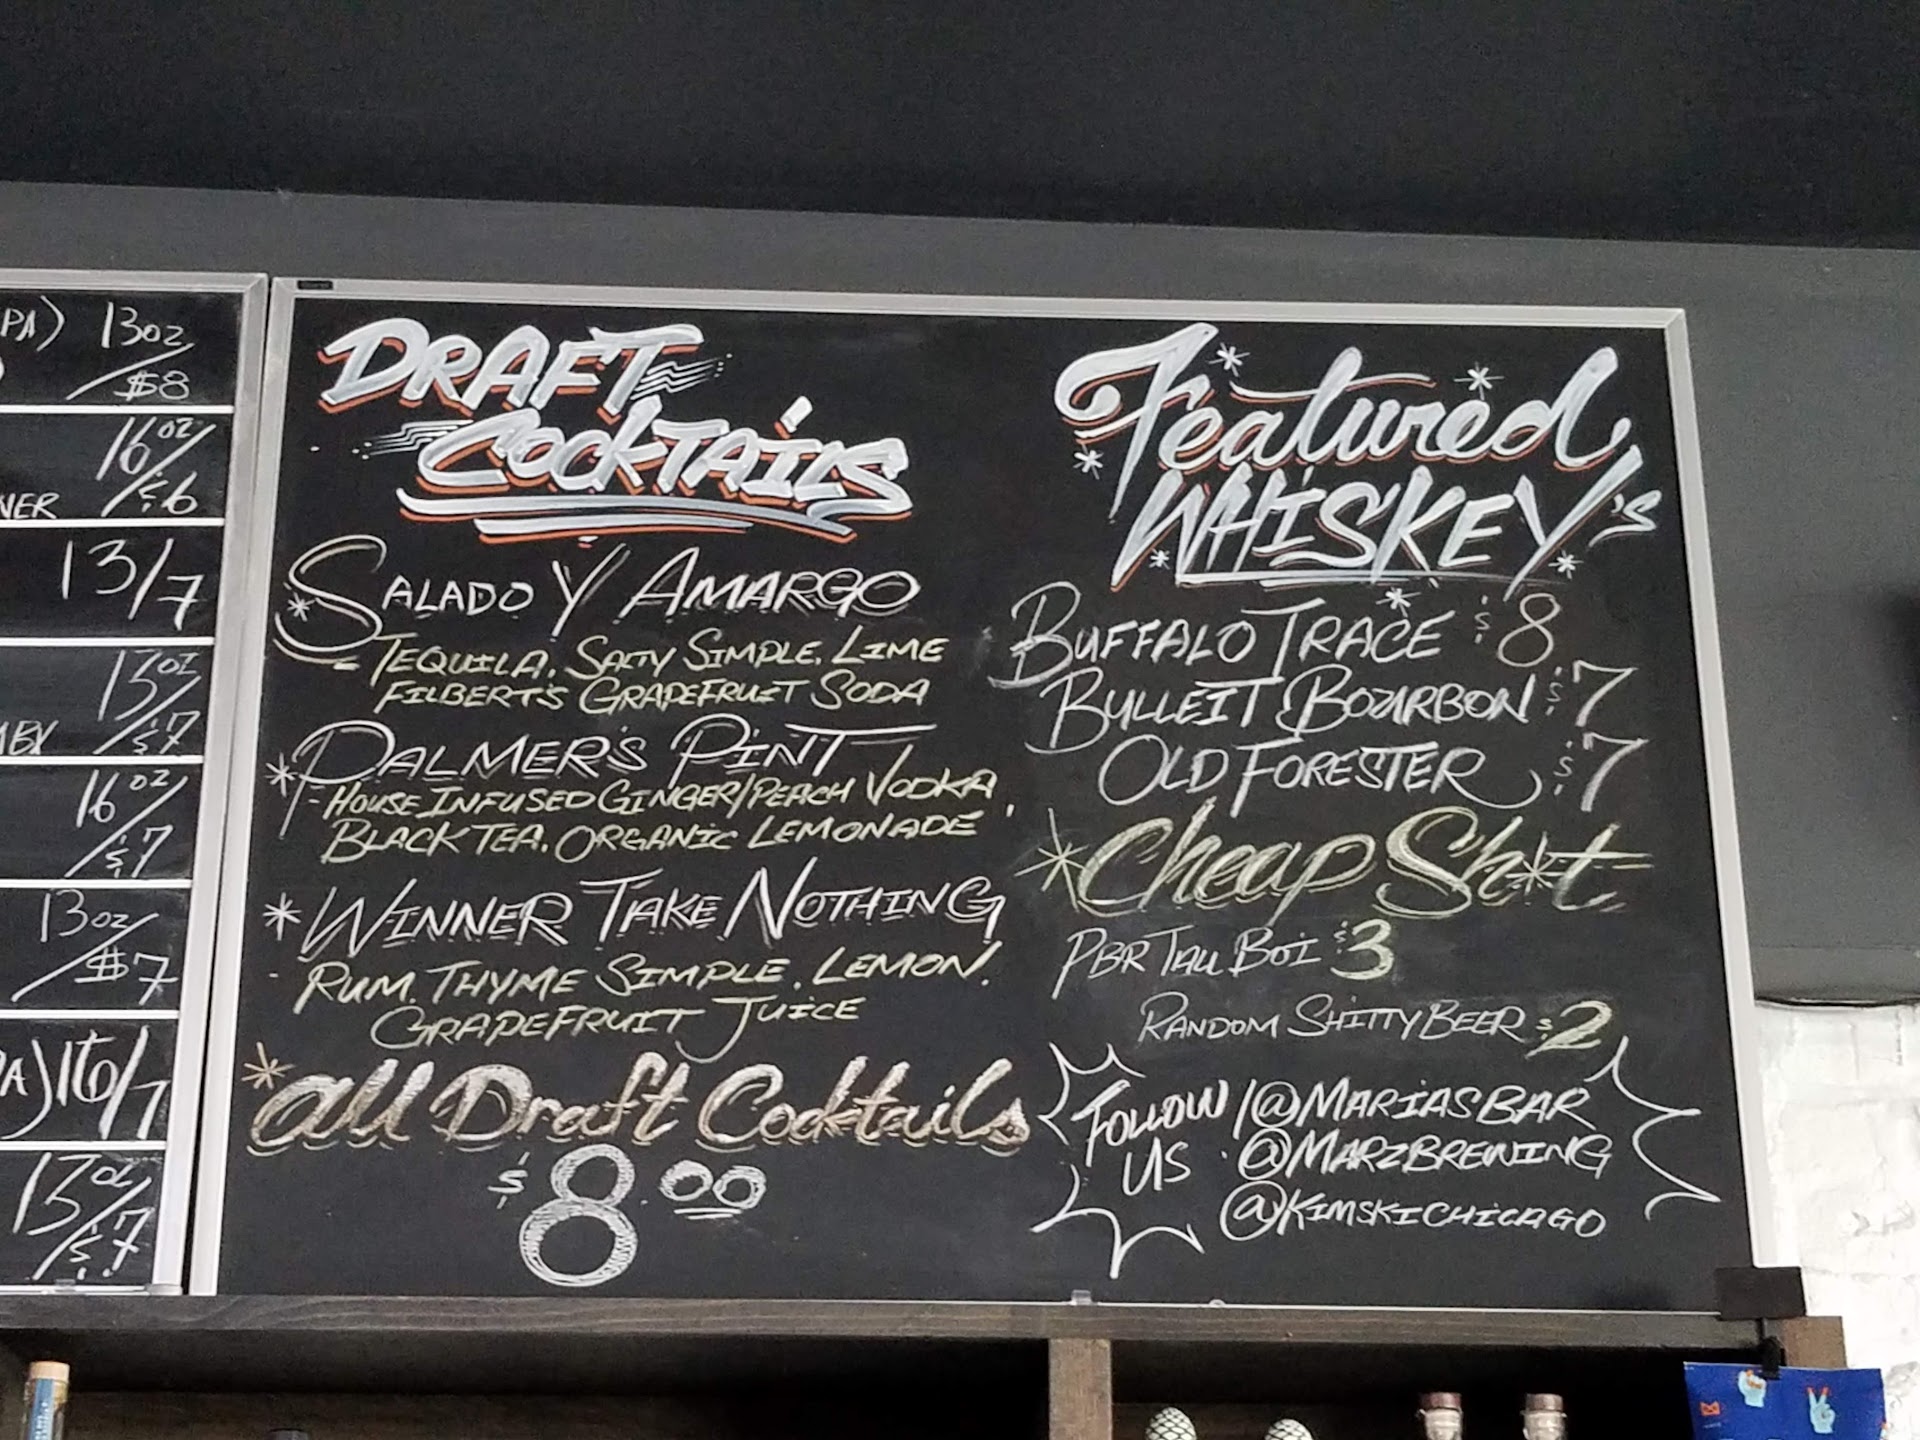 PA) 13oz
/$8
16oz/
NER $6
13/7
13oz
/$7
16oz
/$7
13oz
/$7
A) 16/7
13oz
/$7
DRAFT
COCKTAILS
* SALADO Y AMARGO
- TEQUILA, SALTY SIMPLE, LIME
FILBERT'S GRAPEFRUIT SODA
* PALMER'S PINT
- HOUSE INFUSED GINGER/PEACH VODKA,
BLACK TEA, ORGANIC LEMONADE
* WINNER TAKE NOTHING
- RUM, THYME SIMPLE, LEMON,
GRAPEFRUIT JUICE
* All Draft Cocktails
$8.00
Featured
WHISKEY'S
BUFFALO TRACE $8
BULLEIT BOURBON $7
OLD FORESTER $7
* Cheap Sh*t
PBR TALL BOI $3
RANDOM SHITTY BEER $2
FOLLOW US
@MARIASBAR
@MARZBREWING
@KIMSKICHICAGO